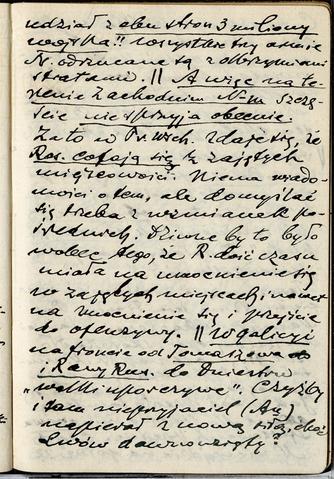 udział z obu stron 3 miliony
wojska!! Wszystkie trzy armie
N. odrzucane są z olbrzymiemi
stratami. || A więc na te-
renie zachodnim N-m szczę-
ście nie sprzyja obecnie.
Za to w Pr. wsch. zdaje się, że
Ros. cofają się z zajętych
miejscowości. Niema wiado-
mości o tem, ale domyślać
się trzeba z wzmianek po-
średnich. Dziwne by to było
wobec tego, że R. dość czasu
miała na umocnienie się
w zajętych miejscach i nawet
na umocnienie się i przejście
do ofenzywy. || W Galicyi
na froncie od Tomaszowa
i Rawy Rus. do Dniestru
„walki uporczywe". Czyżby
i tam nieprzyjaciel (Au)
napierał z nową siłą, choć
Lwów dawno wzięty?